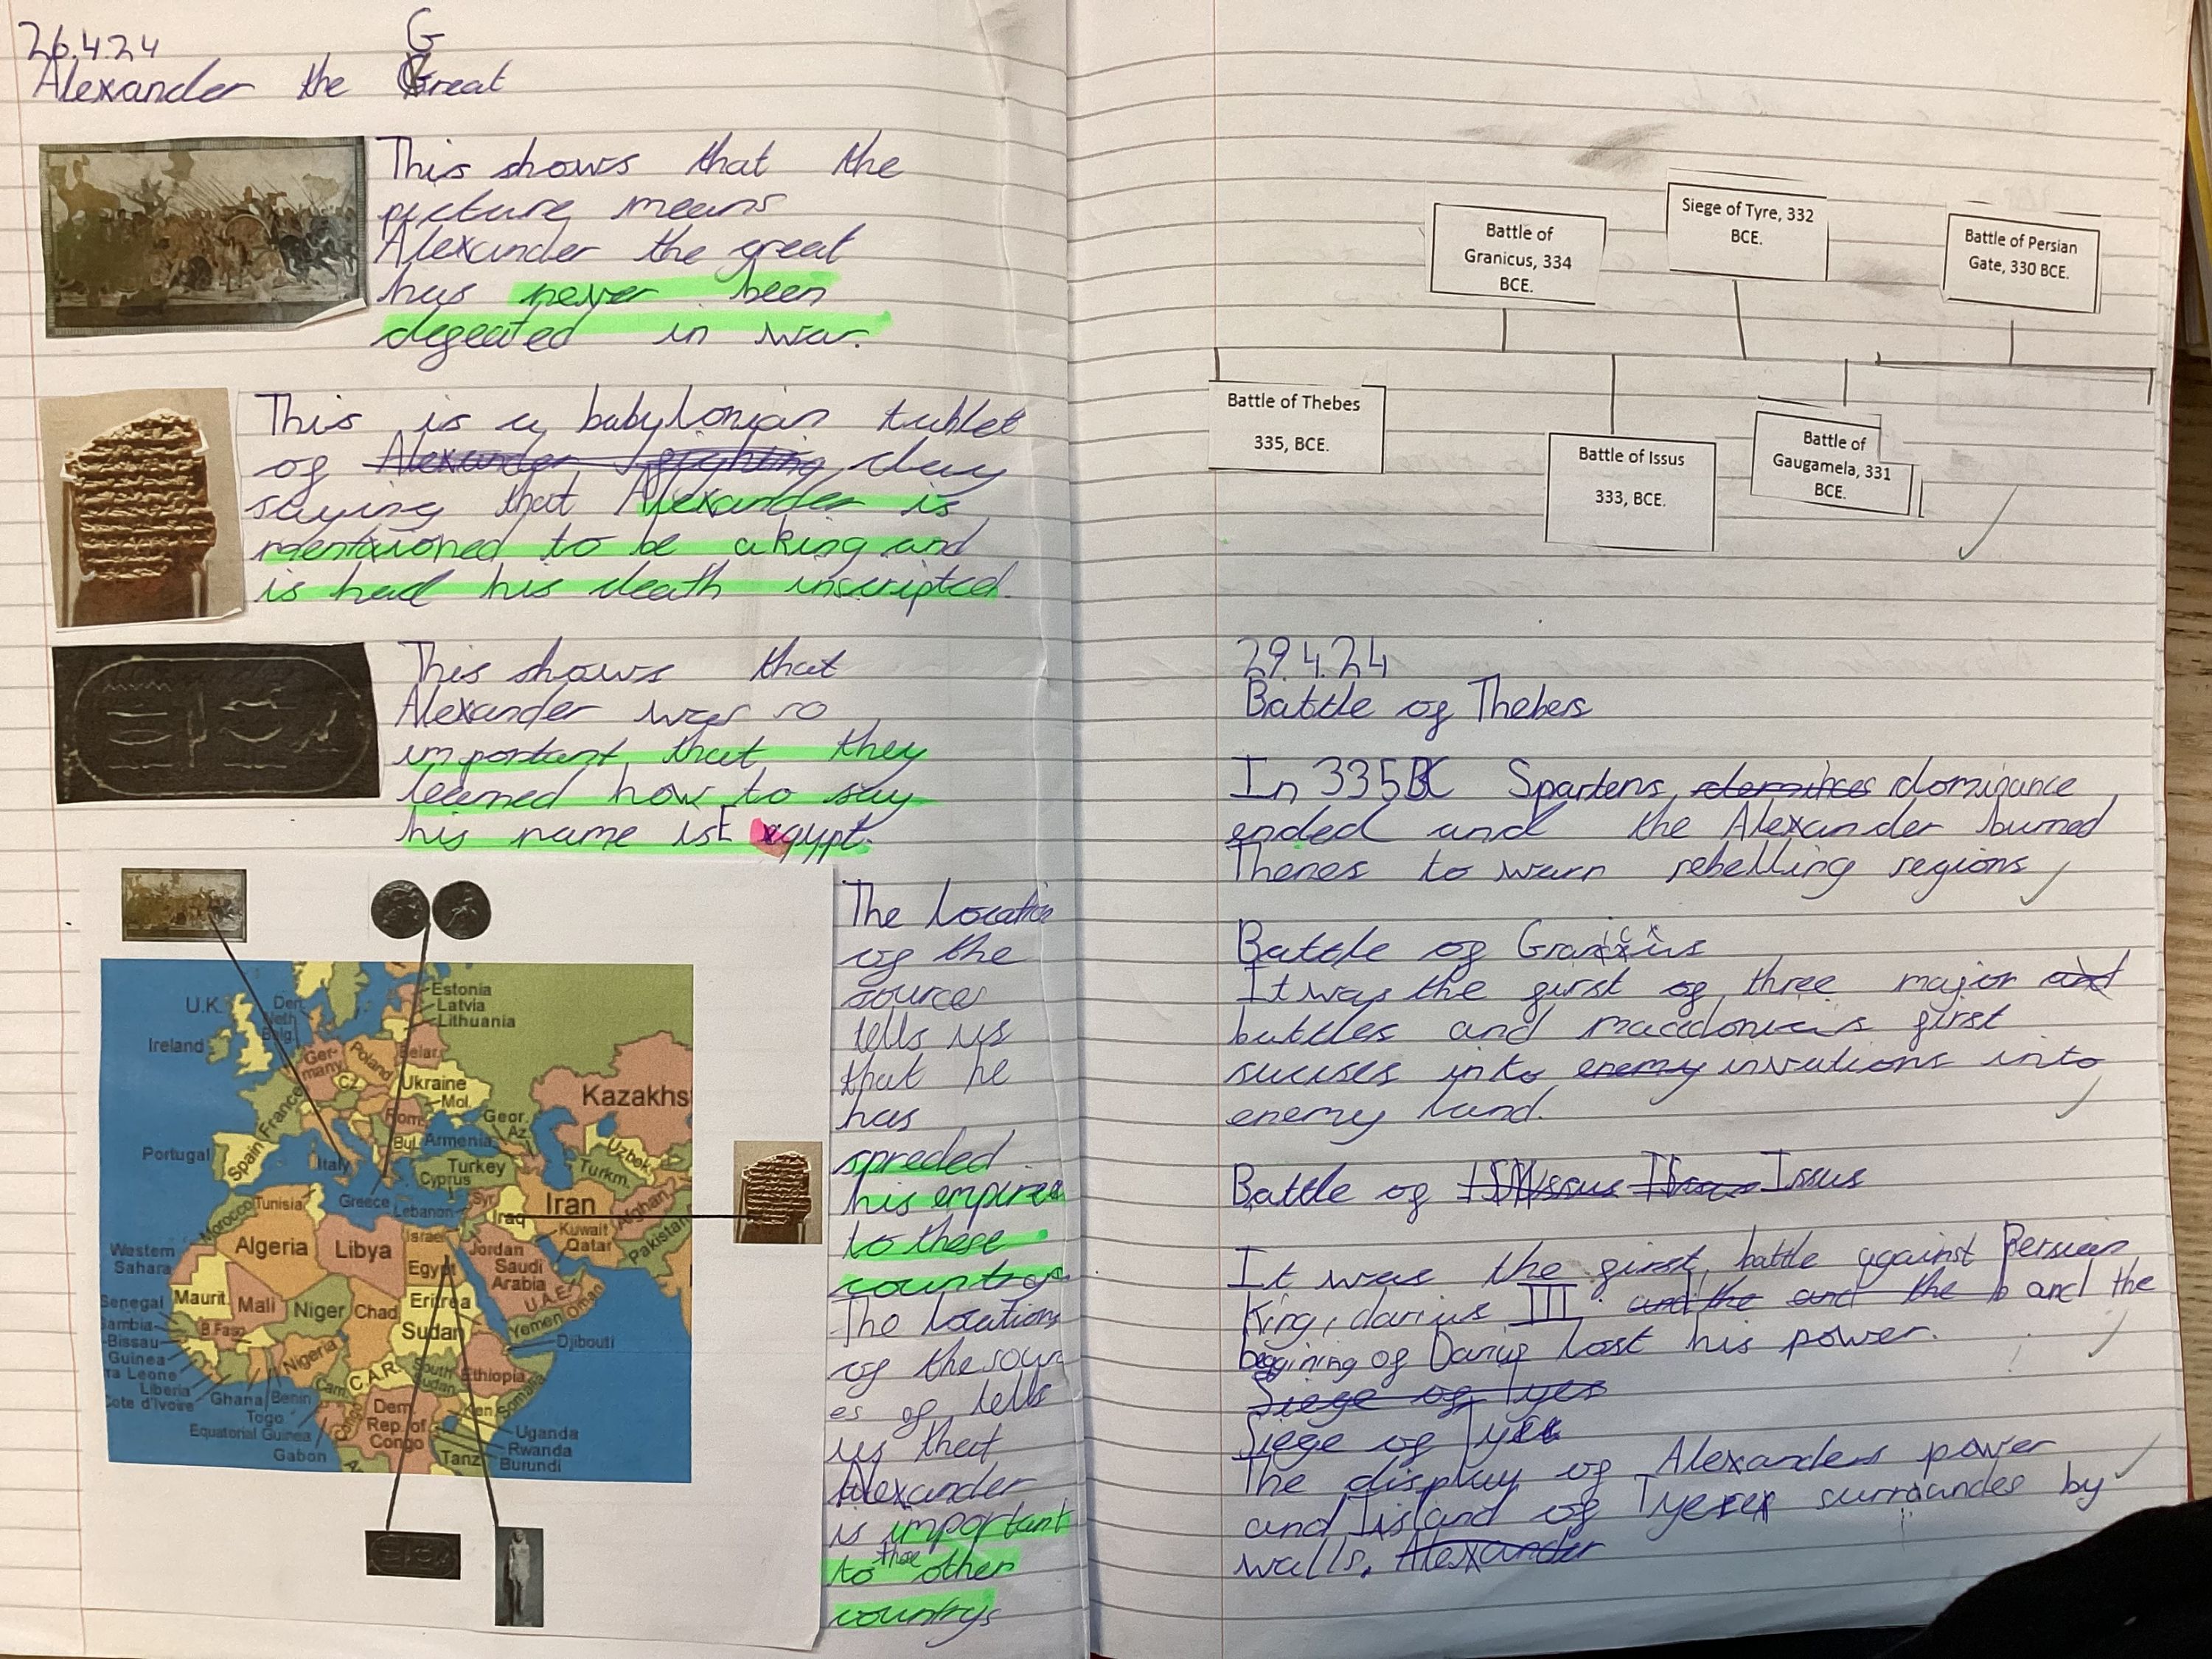 26.4.24
G
Alexander the Great
This shows that the
picture means
Alexander the great
has never been
defeated in war.
This is a babylonian tablet
of Alexander fighting clay
saying that Alexander is
mentioned to be a king and
is had his death inscripted.
This shows that
Alexander was so
important that they
learned how to say
his name is E egypt.
The Location
of the
source
tells us
that he
has
spreded
his empires
to these
countrys
The locations
of the sour
es of tells
us that
Alexander
is important
those
to other
countrys
U.K.
Ireland
Den.
Neth
Belg.
Estonia
Latvia
Lithuania
Ger-
many
Poland
Belar.
CZ
Ukraine
Mol.
Kazakhs
France
Rom.
Geor.
Az.
Bul.
Armenia
Uzbek.
Portugal
Spain
Italy
Turkey
Turkm.
Cyprus
Greece
Syr.
Lebanon
Iraq
Iran
Afghan.
Morocco
Tunisia
Israel
Jordan
Kuwait
Qatar
Pakistan
Western
Sahara
Algeria
Libya
Egypt
Saudi
Arabia
U.A.E.
Oman
Yemen
Senegal
Maurit.
Mali
Niger
Chad
Eritrea
Sudan
Djibouti
ambia
-Bissau
Guinea
ra Leone
Liberia
Cote d'Ivoire
B.Faso
Ghana
Benin
Togo
Nigeria
Cam.
C.A.R.
South
Sudan
Ethiopia
Somalia
Equatorial Guinea
Gabon
Congo
Dem.
Rep. of
Congo
Ken.
Uganda
Rwanda
Burundi
Tanz
Battle of
Granicus, 334
BCE.
Siege of Tyre, 332
BCE.
Battle of Persian
Gate, 330 BCE.
Battle of Thebes
335, BCE.
Battle of Issus
333, BCE.
Battle of
Gaugamela, 331
BCE.
29.4.24
Battle of Thebers
In 335BC Spartens dominance
ended and the Alexander burned
Thenes to warn rebelling regions
Battle of Granicus
It was the first of three major and
battles and macedonians first
sucuses into enemy invations into
enemy land.
Battle of Issus
It was the first battle against Persian
King, darius III and the and the b and the
beggining of Darius lost his power.
Siege of Tyes
Siege of Tyre
The display of Alexanders power
and Island of Tyere surroundes by
walls. Alexander